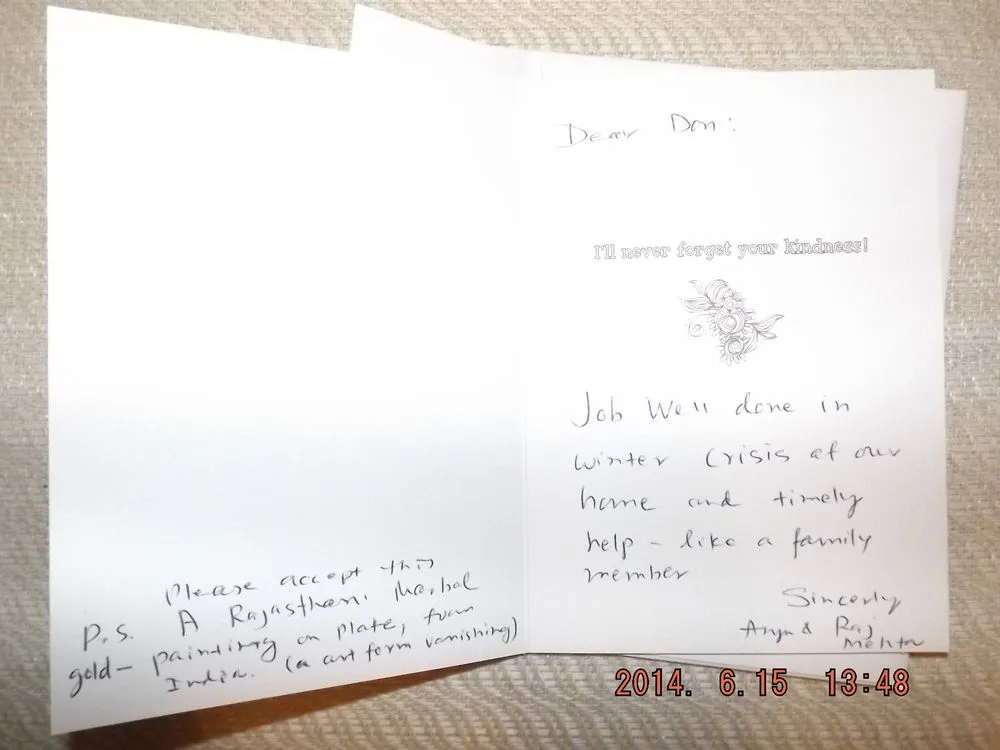 Please accept this
P.S. A Rajasthani Marbal
gold- painting on plate, from
India. (a art form vanishing)
Dear Don:
I'll never forget your kindness!
Job Well done in
winter crisis at our
home and timely
help - like a family
member
Sincerly
& Raj
Mehta
2014. 6.15 13:48